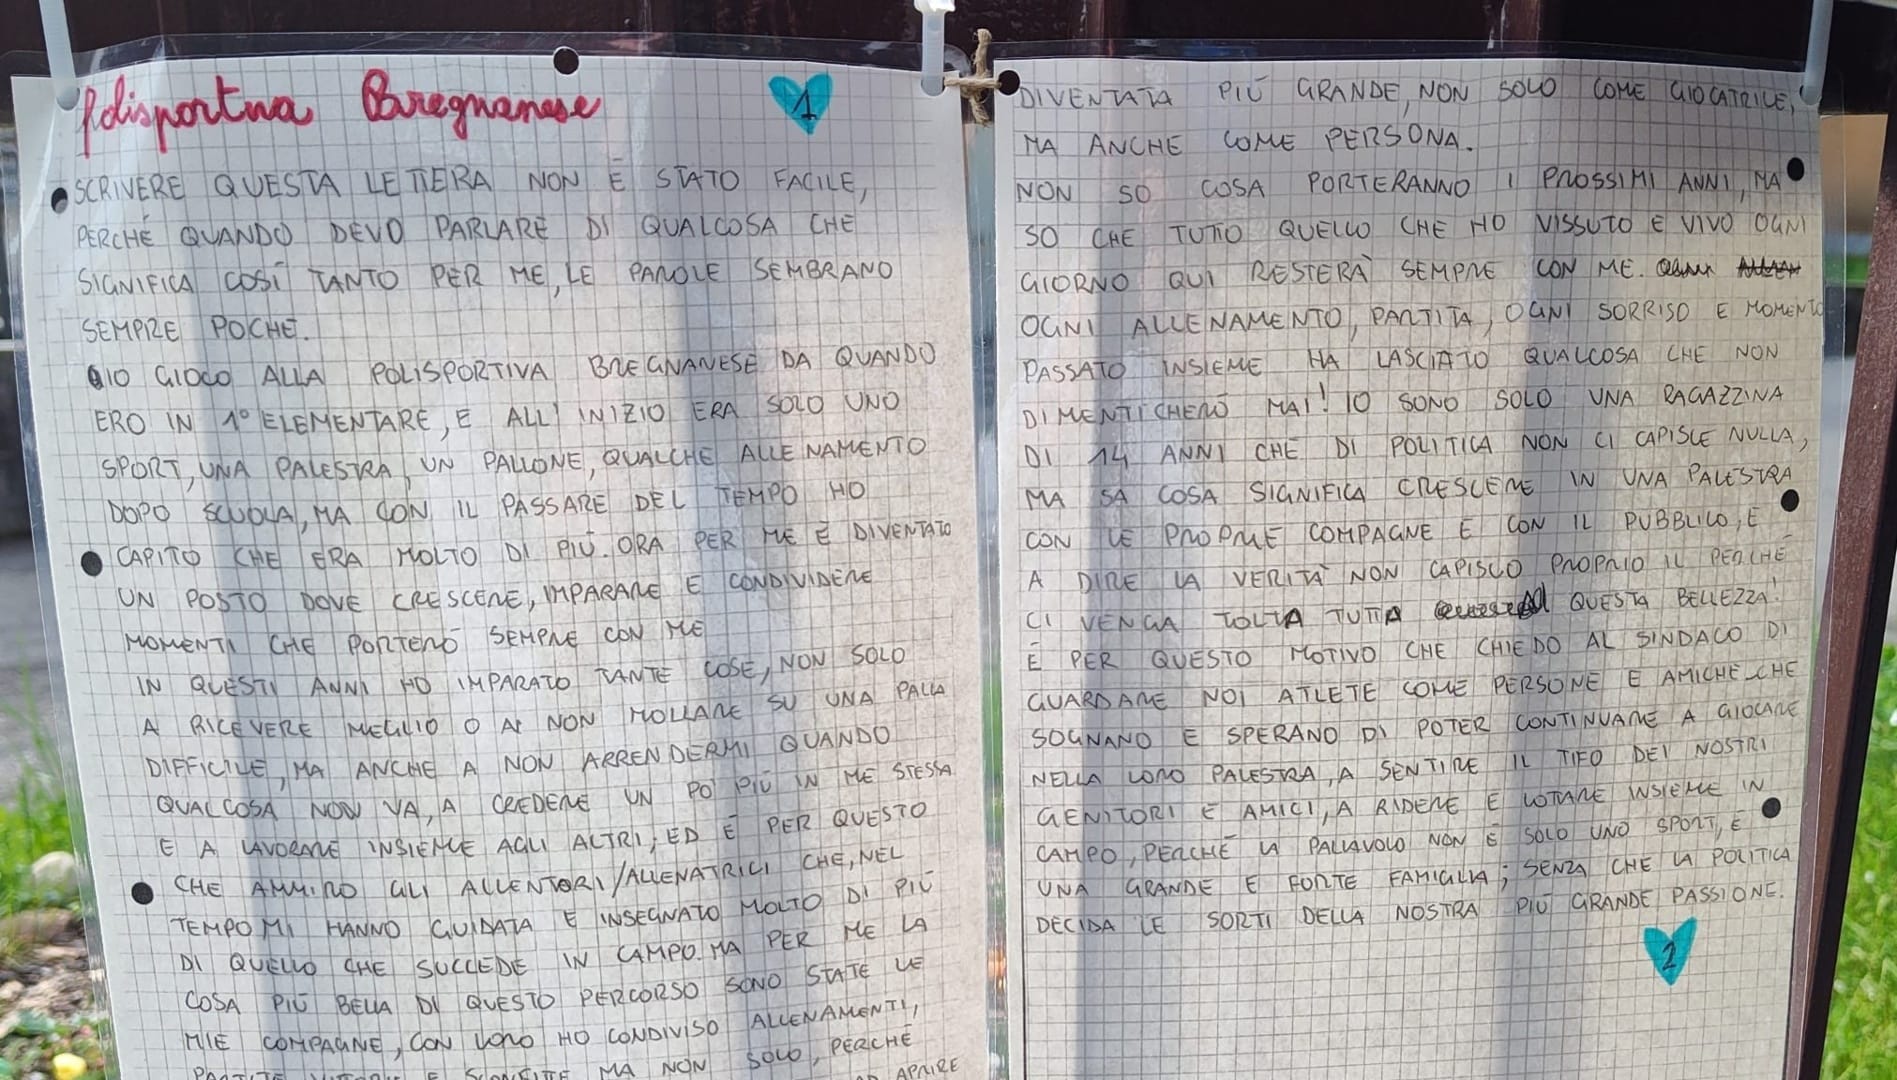 Polisportiva Bregnanese
1
SCRIVERE QUESTA LETTERA NON È STATO FACILE,
PERCHÉ QUANDO DEVO PARLARE DI QUALCOSA CHE
SIGNIFICA COSÌ TANTO PER ME, LE PAROLE SEMBRANO
SEMPRE POCHE.
IO GIOCO ALLA POLISPORTIVA BREGNANESE DA QUANDO
ERO IN 1° ELEMENTARE, E ALL'INIZIO ERA SOLO UNO
SPORT, UNA PALESTRA, UN PALLONE, QUALCHE ALLENAMENTO
DOPO SCUOLA, MA CON IL PASSARE DEL TEMPO HO
CAPITO CHE ERA MOLTO DI PIÙ. ORA PER ME È DIVENTATO
UN POSTO DOVE CRESCERE, IMPARARE E CONDIVIDERE
MOMENTI CHE PORTERÒ SEMPRE CON ME
IN QUESTI ANNI HO IMPARATO TANTE COSE, NON SOLO
A RICEVERE MEGLIO O A NON MOLLARE SU UNA PALLA
DIFFICILE, MA ANCHE A NON ARRENDERMI QUANDO
QUALCOSA NON VA, A CREDERE UN PO' PIÙ IN ME STESSA
E A LAVORARE INSIEME AGLI ALTRI; ED È PER QUESTO
CHE AMMIRO GLI ALLENTORI/ALLENATRICI CHE, NEL
TEMPO MI HANNO GUIDATA E INSEGNATO MOLTO DI PIÙ
DI QUELLO CHE SUCCEDE IN CAMPO. MA PER ME LA
COSA PIÙ BELLA DI QUESTO PERCORSO SONO STATE LE
MIE COMPAGNE, CON LORO HO CONDIVISO ALLENAMENTI,
PARTITE VITTORIE E SCONFITTE MA NON SOLO, PERCHÉ
APRIRE
DIVENTATA PIÙ GRANDE, NON SOLO COME GIOCATRICE,
MA ANCHE COME PERSONA.
NON SO COSA PORTERANNO I PROSSIMI ANNI, MA
SO CHE TUTTO QUELLO CHE HO VISSUTO E VIVO OGNI
GIORNO QUI RESTERÀ SEMPRE CON ME.
OGNI ALLENAMENTO, PARTITA, OGNI SORRISO E MOMENTO
PASSATO INSIEME HA LASCIATO QUALCOSA CHE NON
DIMENTICHERÒ MAI! IO SONO SOLO UNA RAGAZZINA
DI 14 ANNI CHE DI POLITICA NON CI CAPISCE NULLA,
MA SA COSA SIGNIFICA CRESCERE IN UNA PALESTRA
CON LE PROPRIE COMPAGNE E CON IL PUBBLICO, E
A DIRE LA VERITÀ NON CAPISCO PROPRIO IL PERCHÉ
CI VENGA TOLTA TUTTA QUESTA BELLEZZA!
È PER QUESTO MOTIVO CHE CHIEDO AL SINDACO DI
GUARDARE NOI ATLETE COME PERSONE E AMICHE CHE
SOGNANO E SPERANO DI POTER CONTINUARE A GIOCARE
NELLA LORO PALESTRA, A SENTIRE IL TIFO DEI NOSTRI
GENITORI E AMICI, A RIDERE E LOTARE INSIEME IN
CAMPO, PERCHÉ LA PALLAVOLO NON È SOLO UNO SPORT, È
UNA GRANDE E FORTE FAMIGLIA; SENZA CHE LA POLITICA
DECIDA LE SORTI DELLA NOSTRA PIÙ GRANDE PASSIONE.
2